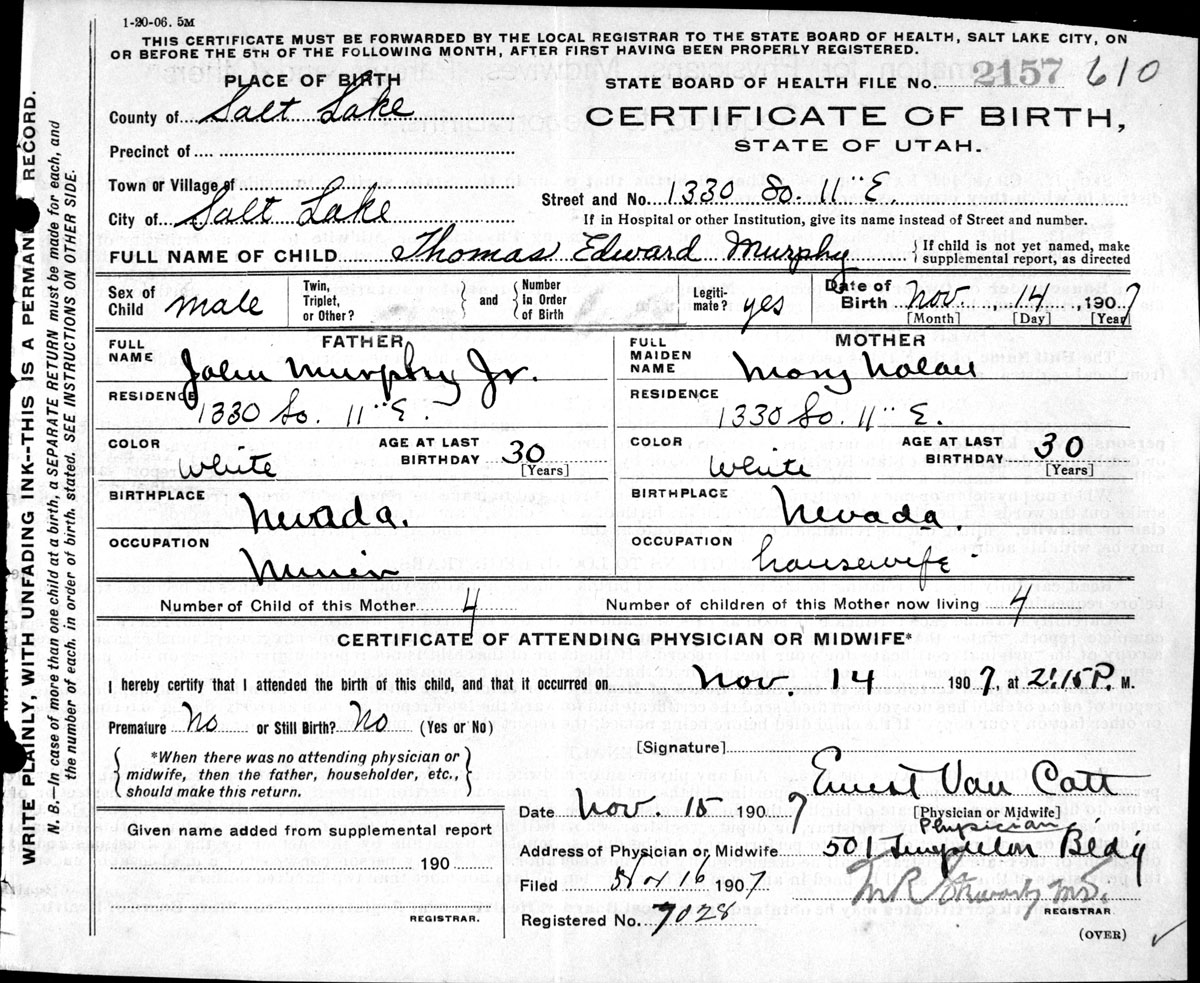 1-20-06. 5M
THIS CERTIFICATE MUST BE FORWARDED BY THE LOCAL REGISTRAR TO THE STATE BOARD OF HEALTH, SALT LAKE CITY, ON
OR BEFORE THE 5TH OF THE FOLLOWING MONTH, AFTER FIRST HAVING BEEN PROPERLY REGISTERED.
PLACE OF BIRTH
STATE BOARD OF HEALTH FILE No. 2157 610
County of Salt Lake
CERTIFICATE OF BIRTH,
STATE OF UTAH.
Precinct of
Town or Village of
Street and No. 1330 So. 11" E
City of Salt Lake
If in Hospital or other Institution, give its name instead of Street and number.
FULL NAME OF CHILD Thomas Edward Murphy { If child is not yet named, make
supplemental report, as directed
Sex of Child male Twin, Triplet, or Other? } and { Number In Order of Birth Legiti-mate? yes Date of Birth Nov. 14, 1907
[Month] [Day] [Year]
FATHER
FULL NAME John Murphy Jr.
RESIDENCE 1330 So. 11" E.
COLOR White AGE AT LAST BIRTHDAY 30 [Years]
BIRTHPLACE Nevada.
OCCUPATION
MOTHER
FULL MAIDEN NAME Mary Nolan
RESIDENCE 1330 So. 11" E.
COLOR White AGE AT LAST BIRTHDAY 30 [Years]
BIRTHPLACE Nevada.
OCCUPATION housewife
Number of Child of this Mother 4 Number of children of this Mother now living 4
CERTIFICATE OF ATTENDING PHYSICIAN OR MIDWIFE*
I hereby certify that I attended the birth of this child, and that it occurred on Nov. 14 1907 at 2:15 P M.
Premature No or Still Birth? No (Yes or No)
*When there was no attending physician or
midwife, then the father, householder, etc.,
should make this return.
[Signature] Ernest Van Cott
[Physician or Midwife]
Physician
Date Nov. 15 1907
Given name added from supplemental report
190
REGISTRAR.
Address of Physician or Midwife 501 Templeton Bldg
Filed Nov 16 1907
M R
REGISTRAR
Registered No. 7028
(OVER)
WRITE PLAINLY, WITH UNFADING INK--THIS IS A PERMANENT RECORD.
N. B. In case of more than one child at a birth, a SEPARATE RETURN must be made for each, and
the number of each, in order of birth, stated. SEE INSTRUCTIONS ON OTHER SIDE.